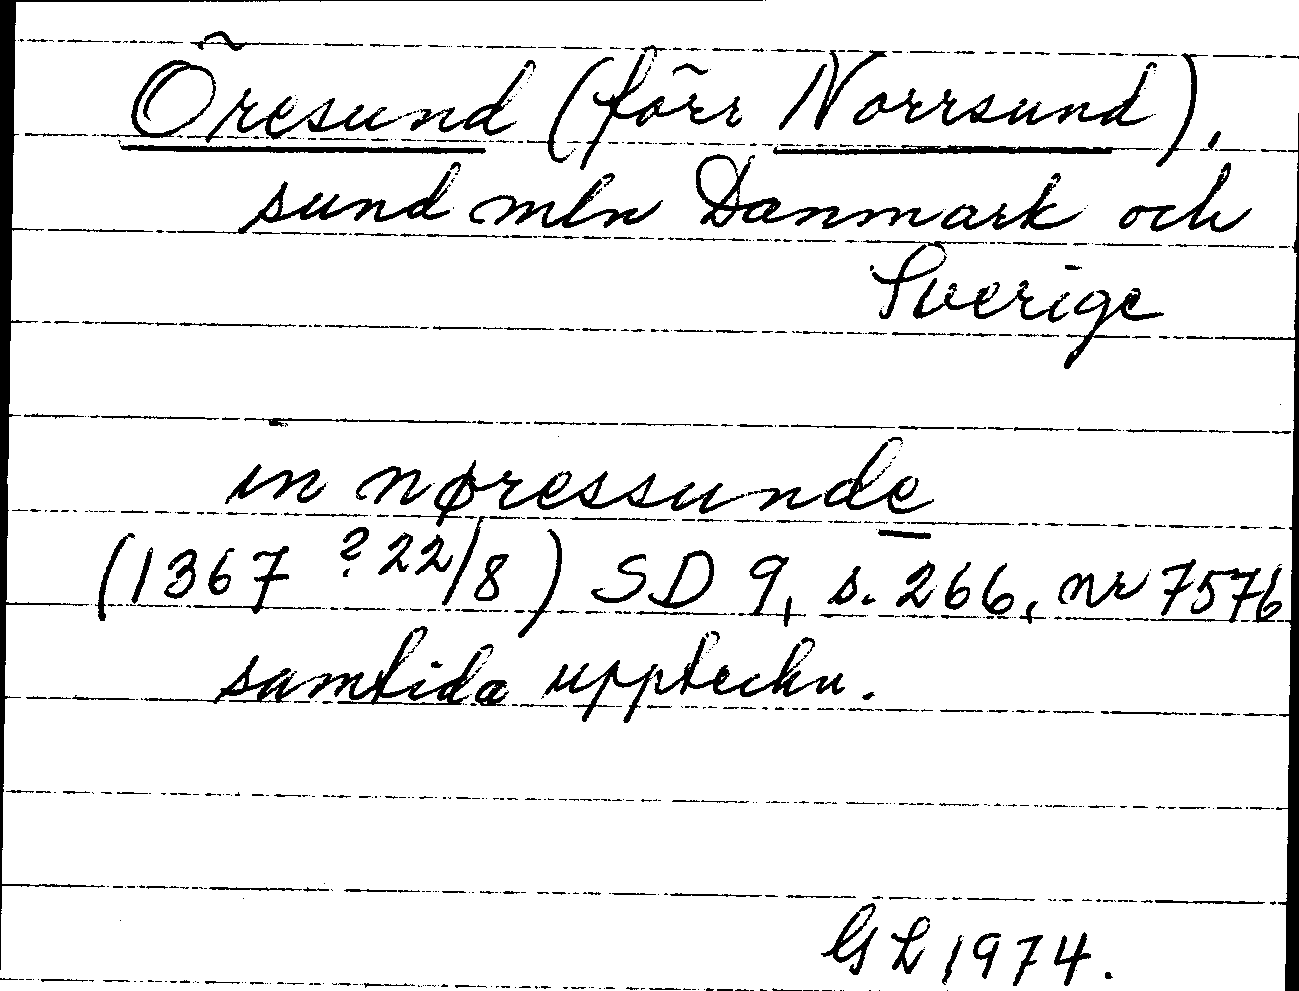 Öresund (förr Norrsund),
sund mln Danmark och
Sverige
in nøressunde
(1367 ? 22/8) SD 9, s. 266, nr 7576
samtida uppteckn.
GL 1974.